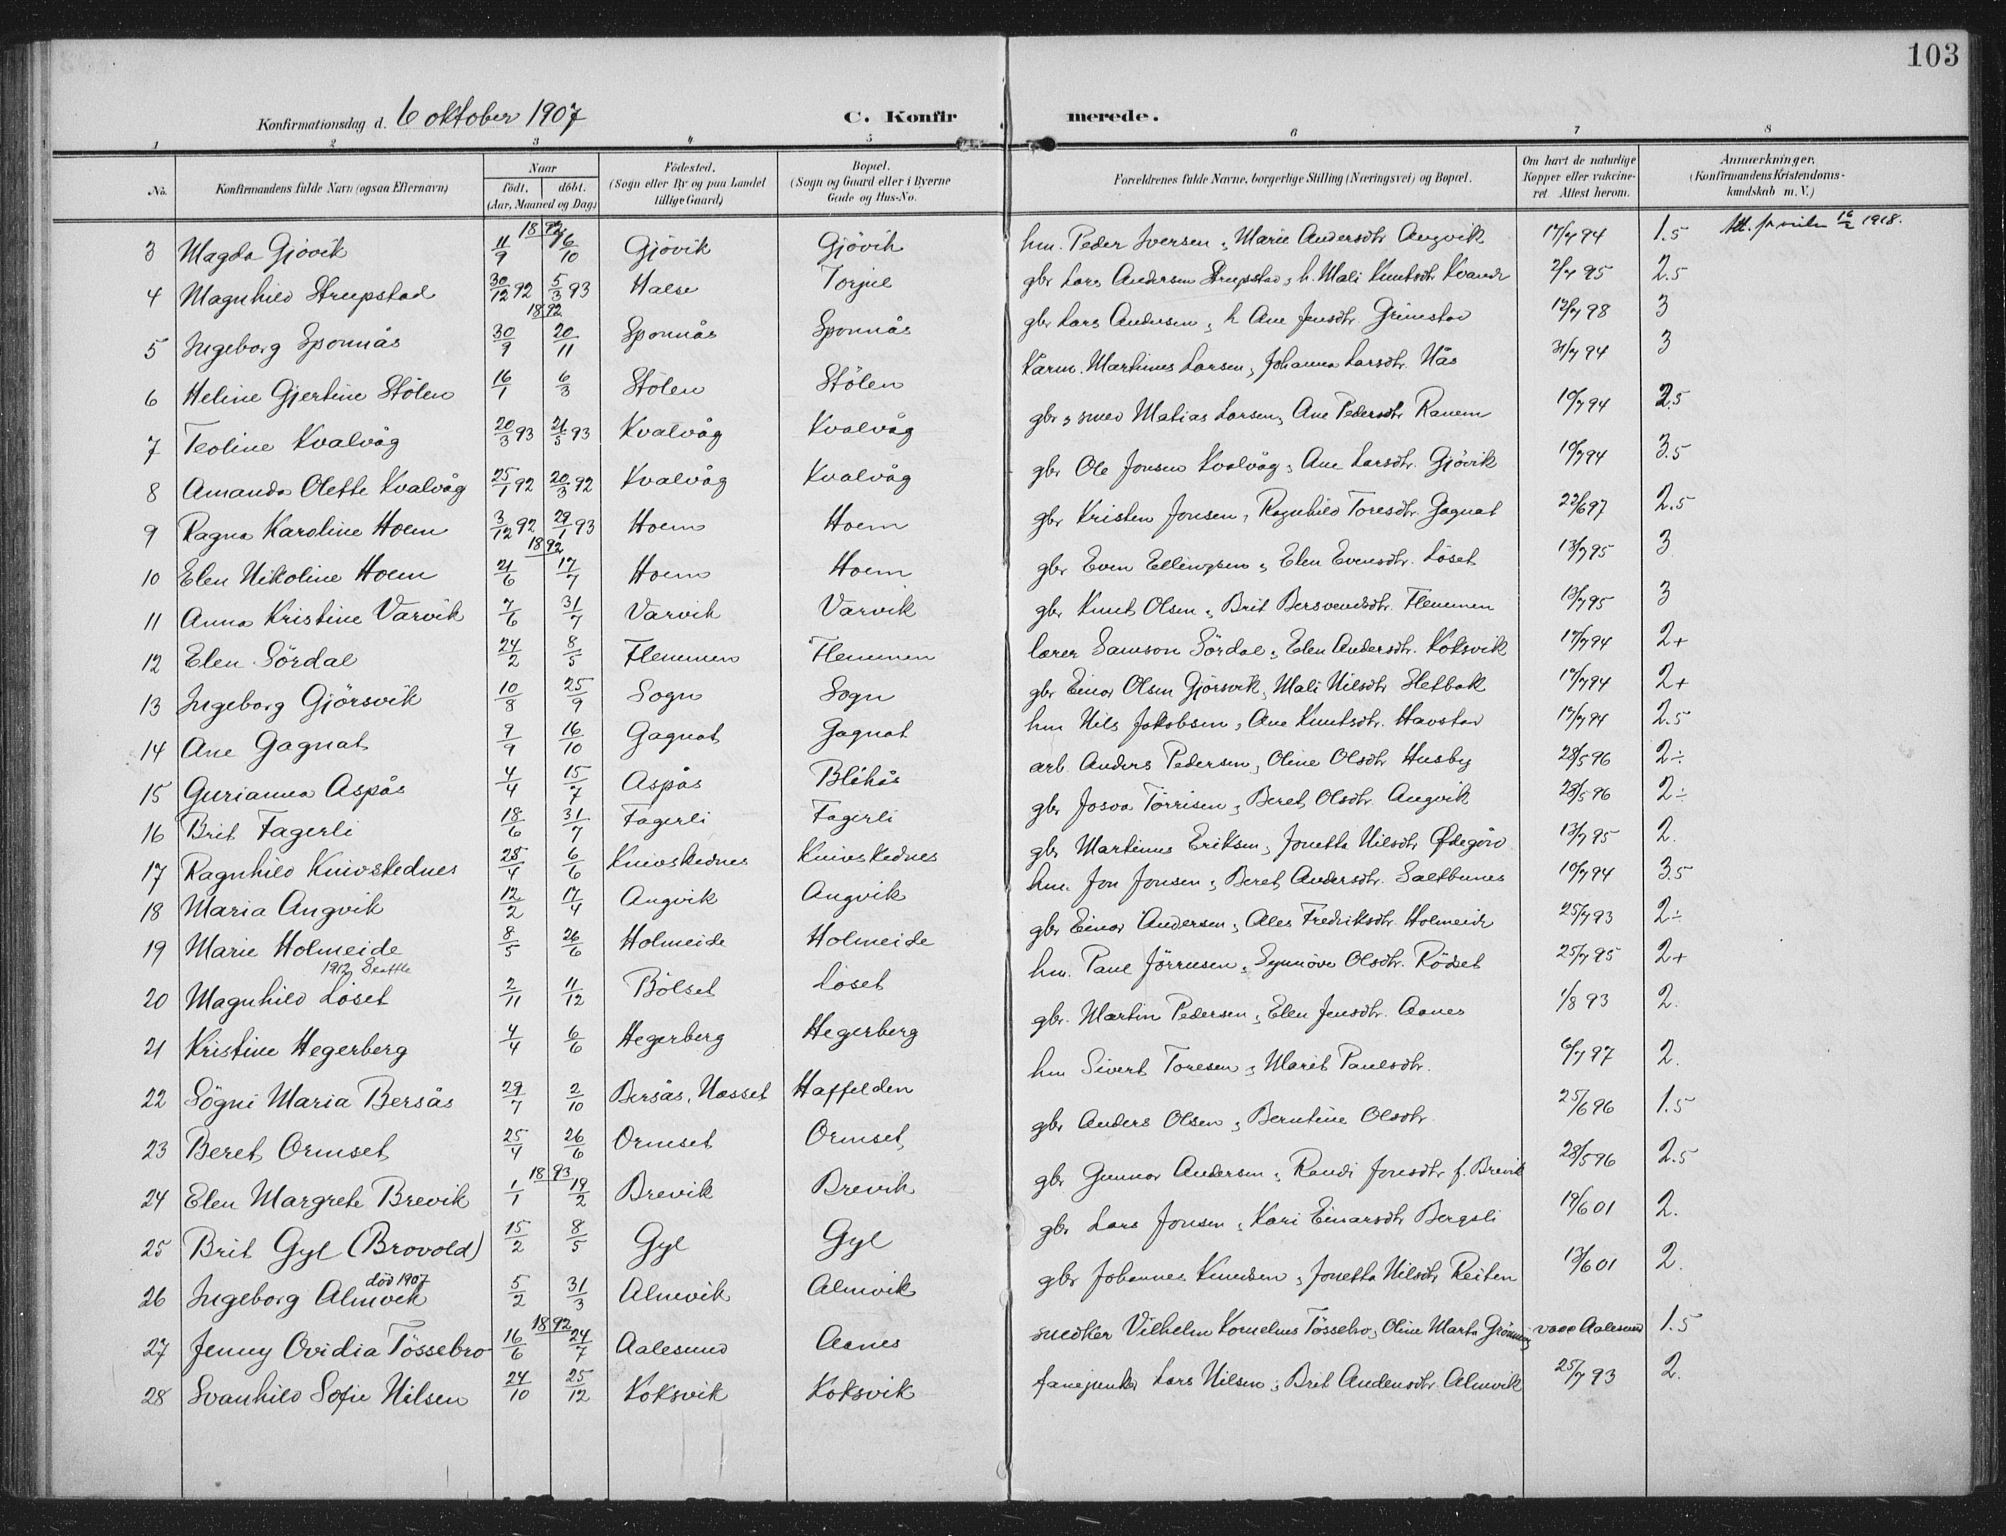 103
Konfirmationsdag d. 6 oktober 1907 C. Konfirmerede.
1 2 3 4 5 6 7 8
No. Konfirmandens fulde Navn (ogsaa Efternavn) Naar født. døbt. (Aar, Maaned og Dag) Födested. (Sogn eller By og paa Landet tillige Gaard) Bopæl. (Sogn og Gaard eller i Byerne Gade og Hus-No. Forældrenes fulde Navne, borgerlige Stilling (Næringsvei) og Bopæl. Om havt de naturlige Kopper eller vakcineret. Attest herom. Anmærkninger. (Konfirmandens Kristendomskundskab m. V.)
1892
3 Magda Gjövik 11/9 16/10 Gjövik Gjövik hm. Peder Iversen, Marie Andersdtr Angvik 17/7 94 1.5 16/2 1918.
4 Magnhild Strupstad 30/12 92 5/3 93 Halse Torjul gbr Lars Andersen Strupstad, h. Mali Knutsdtr Kvande 2/7 95 2.5
1892
5 Ingeborg Sponnås 30/9 20/11 Sponnås Sponnås gbr Lars Andersen, h Ane Jensdtr. Grimstad 12/7 98 3
6 Heline Gjertine Stölen 16/1 6/3 Stölen Stölen Kårm. Martinus Larsen, Johanna Larsdtr. Nås 31/7 94 3
7 Teoline Kvalvåg 20/3 93 21/5 93 Kvalvåg Kvalvåg gbr & smed Matias Larsen, Ane Pedersdtr Ranem 10/7 94 2.5
8 Amanda Olette Kvalvåg 25/1 92 20/3 92 Kvalvåg Kvalvåg gbr Ole Jonsen Kvalvåg, Ane Larsdtr. Gjövik 10/7 94 3.5
9 Ragna Karoline Hoem 3/12 92 29/1 93 Hoem Hoem gbr Kristen Jonsen, Ragnhild Toresdtr. Gagnat 22/6 97 2.5
1892
10 Elen Nikoline Hoem 21/6 17/7 Hoem Hoem gbr Even Ellingsen, Elen Evensdtr. Löset 13/7 95 3
11 Anna Kristine Varvik 7/6 31/7 Varvik Varvik gbr Knut Olsen, Brit Bersvendsdtr. Flemmen 13/7 95 3
12 Elen Sördal 24/2 8/5 Flemmen Flemmen lærer Samson Sördal, Elen Andersdtr. Koksvik 17/7 94 2+
13 Ingeborg Gjörsvik 10/8 25/9 Sogn Sogn gbr Einar Olsen Gjörsvik, Mali Nilsdtr Sletbak 17/7 94 2+
14 Ane Gagnat 9/9 16/10 Gagnat Gagnat hm Nils Jakobsen, Ane Knutsdtr. Havstad 17/7 94 2.5
15 Gurianna Aspås 4/4 15/7 Aspås Blåhås arb. Anders Pedersen, Oline Olsdtr Husby 28/5 96 2÷
16 Brit Fagerli 18/6 31/7 Fagerli Fagerli gbr Josva Törrisen, Beret Olsdtr. Angvik 28/5 96 2÷
17 Ragnhild Knivskednes 25/4 6/6 Knivskednes Knivskednes gbr Martinus Eriksen, Jonetta Nilsdtr Ødegård 13/7 95 2.
18 Maria Angvik 12/2 17/4 Angvik Angvik hm. Jon Jonsen, Beret Andersdtr. Saltbunes 10/7 94 3.5
19 Marie Holmeide 8/5 26/6 Holmeide Holmeide gbr Einar Andersen, Ales Fredriksdtr. Holmeide 25/7 93 2÷
1912 Seattle
20 Magnhild Löset 2/11 11/12 Bölset Löset hm. Paul Jörnsen, Synnöve Olsdtr. Rödset 25/7 95 2+
21 Kristine Hegerberg 4/4 6/6 Hegerberg Hegerberg gbr. Martin Pedersen, Elen Jensdtr. Aanes 1/8 93 2.
22 Sögni Maria Bersås 29/7 2/10 Bersås, Nesset Haffelden hm Sivert Toresen, Marit Paulsdtr. 6/7 97 2.
23 Beret Ormset 25/4 26/6 Ormset Ormset gbr Anders Olsen, Berntine Olsdtr. 25/6 96 1.5
1893
24 Elen Margrete Brevik 1/1 19/2 Brevik Brevik gbr Gunnar Andersen, Randi Jonsdtr f. Brevik 28/5 96 2.5
25 Brit Gyl (Brovold) 15/2 8/5 Gyl Gyl gbr Lars Jonsen, Kari Einarsdtr Bergsli 19/6 01 2.
död 1907
26 Ingeborg Almvik 5/2 31/3 Almvik Almvik gbr Johannes Knudsen, Jonetta Nilsdtr Reiten 13/6 01 2.
1892
27 Jenny Ovidia Tössebro 16/6 24/7 Aalesund Aanes snedker Vilhelm Kornelius Tössebro, Oline Marta vacc Aalesund 1.5
28 Svanhild Sofie Nilsen 24/10 25/12 Koksvik Koksvik fanejunker Lars Nilsen, Brit Andersdtr. Almvik 25/7 93 2.